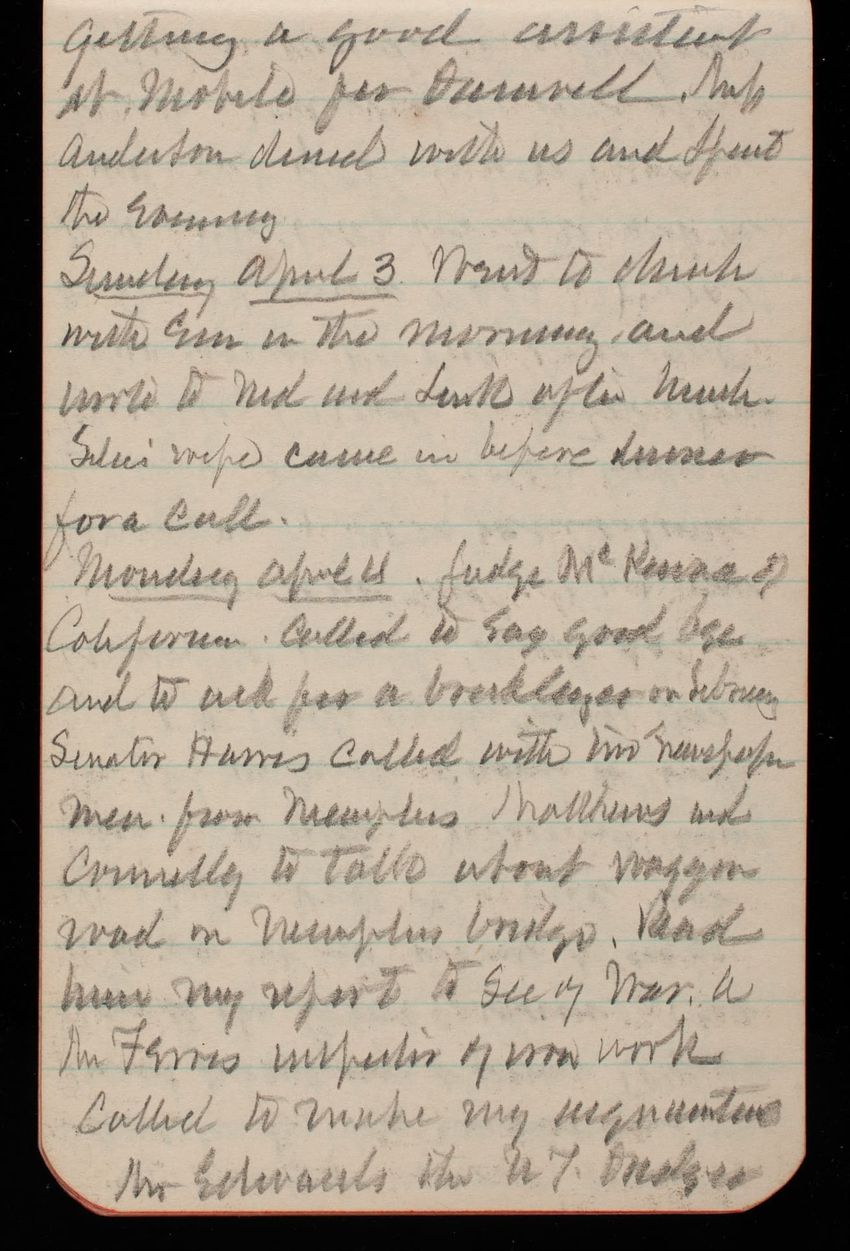 Getting a good assistant
at Mobile for Damrell. Miss
Anderson dined with us and spent
the Evening
Sunday April 3 Went to church
with Em in the morning and
wrote to Ned and after lunch.
wife came in before dinner
for a call.
Monday April 4. Judge McKenna of
California. Called to say good bye
and to ask for a on
Senator Harris called with two newspaper
men. from Memphis Matthews and
Connelly to talk about waggon
road on Memphis bridge. Read
him my report to Sec of War. A
Mr Ferris inspector of iron work
Called to make my acquantance
Mr Edwards the N Y. Dredger